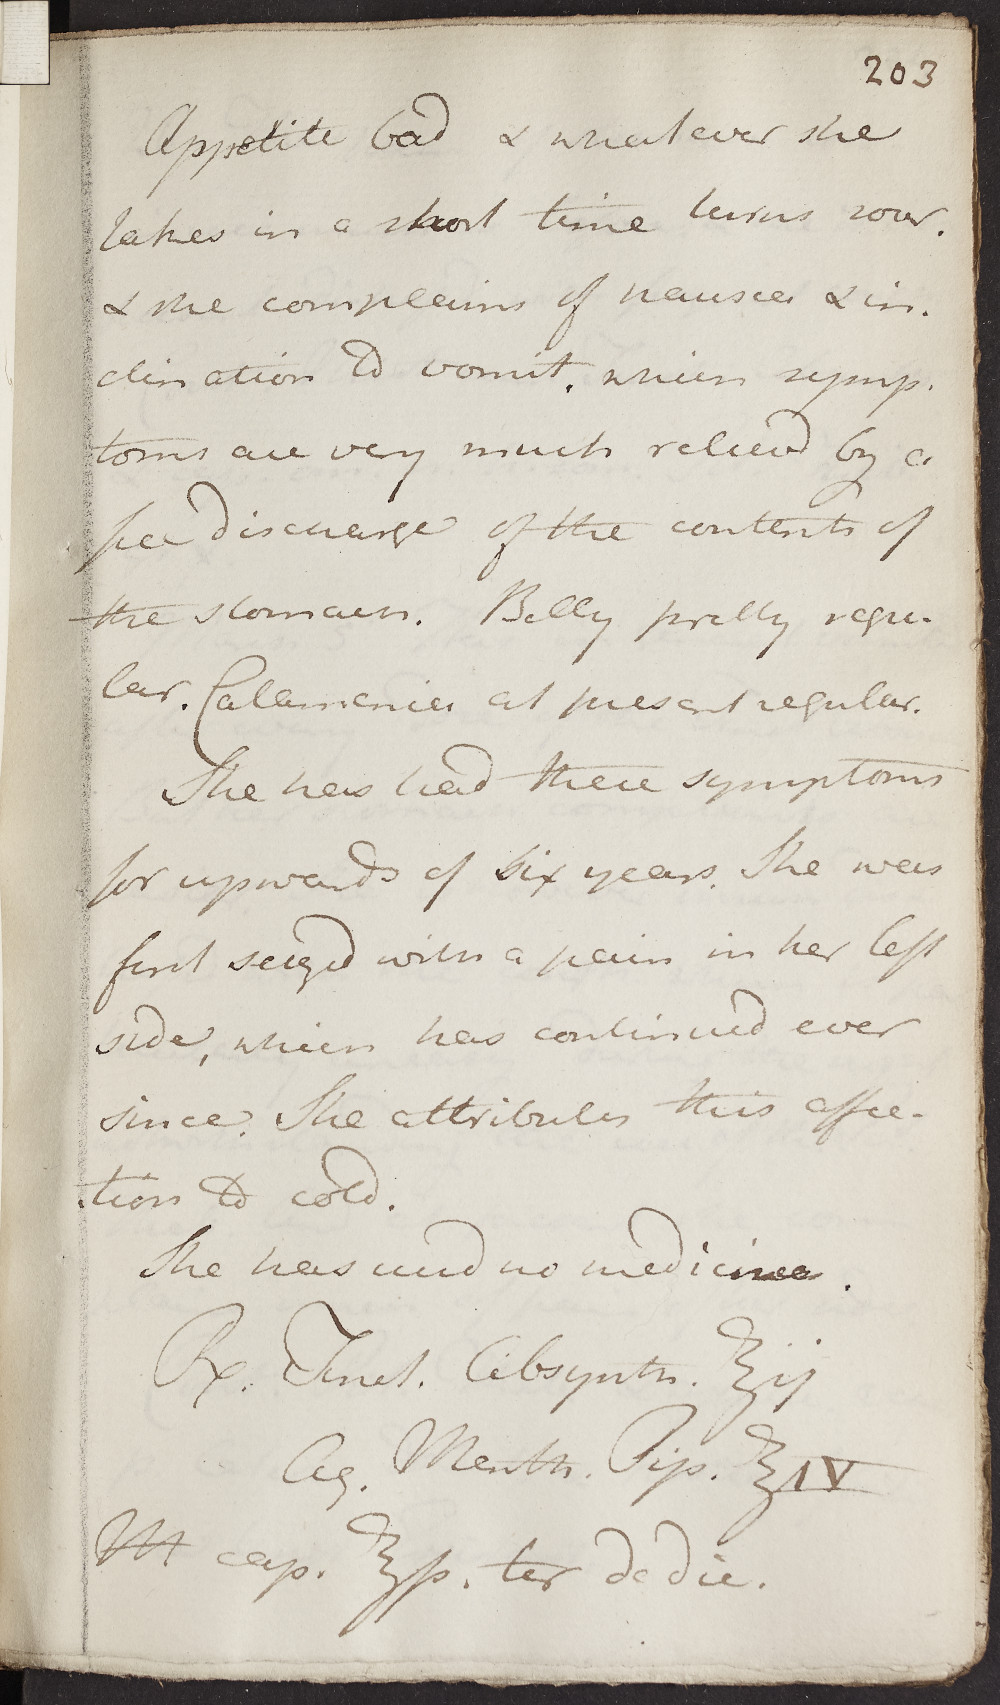 203
Appetite bad & whatever she
takes in a short time turns sour.
& she complains of nausea & in-
clination to vomit, which symp-
toms are very much reliev'd by a
free discharge of the contents of
the stomach. Belly pretty regu-
lar. Catamenia at present regular.
She has had these symptoms
for upwards of six years. She was
first seized with a pain in her left
side, which has continued ever
since. She attributes this affec-
tion to cold.
She has used no medicines.
Rx. Tinct. Absynth. ℥ij
Aq. Menth. Pip. ℥IV
M cap. ℥ß. ter de die.